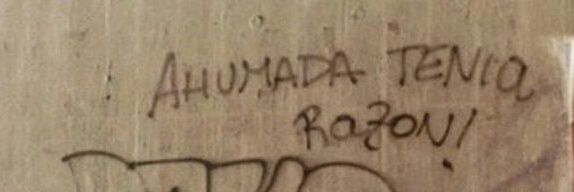 AHUMADA TENIA
RAZON!